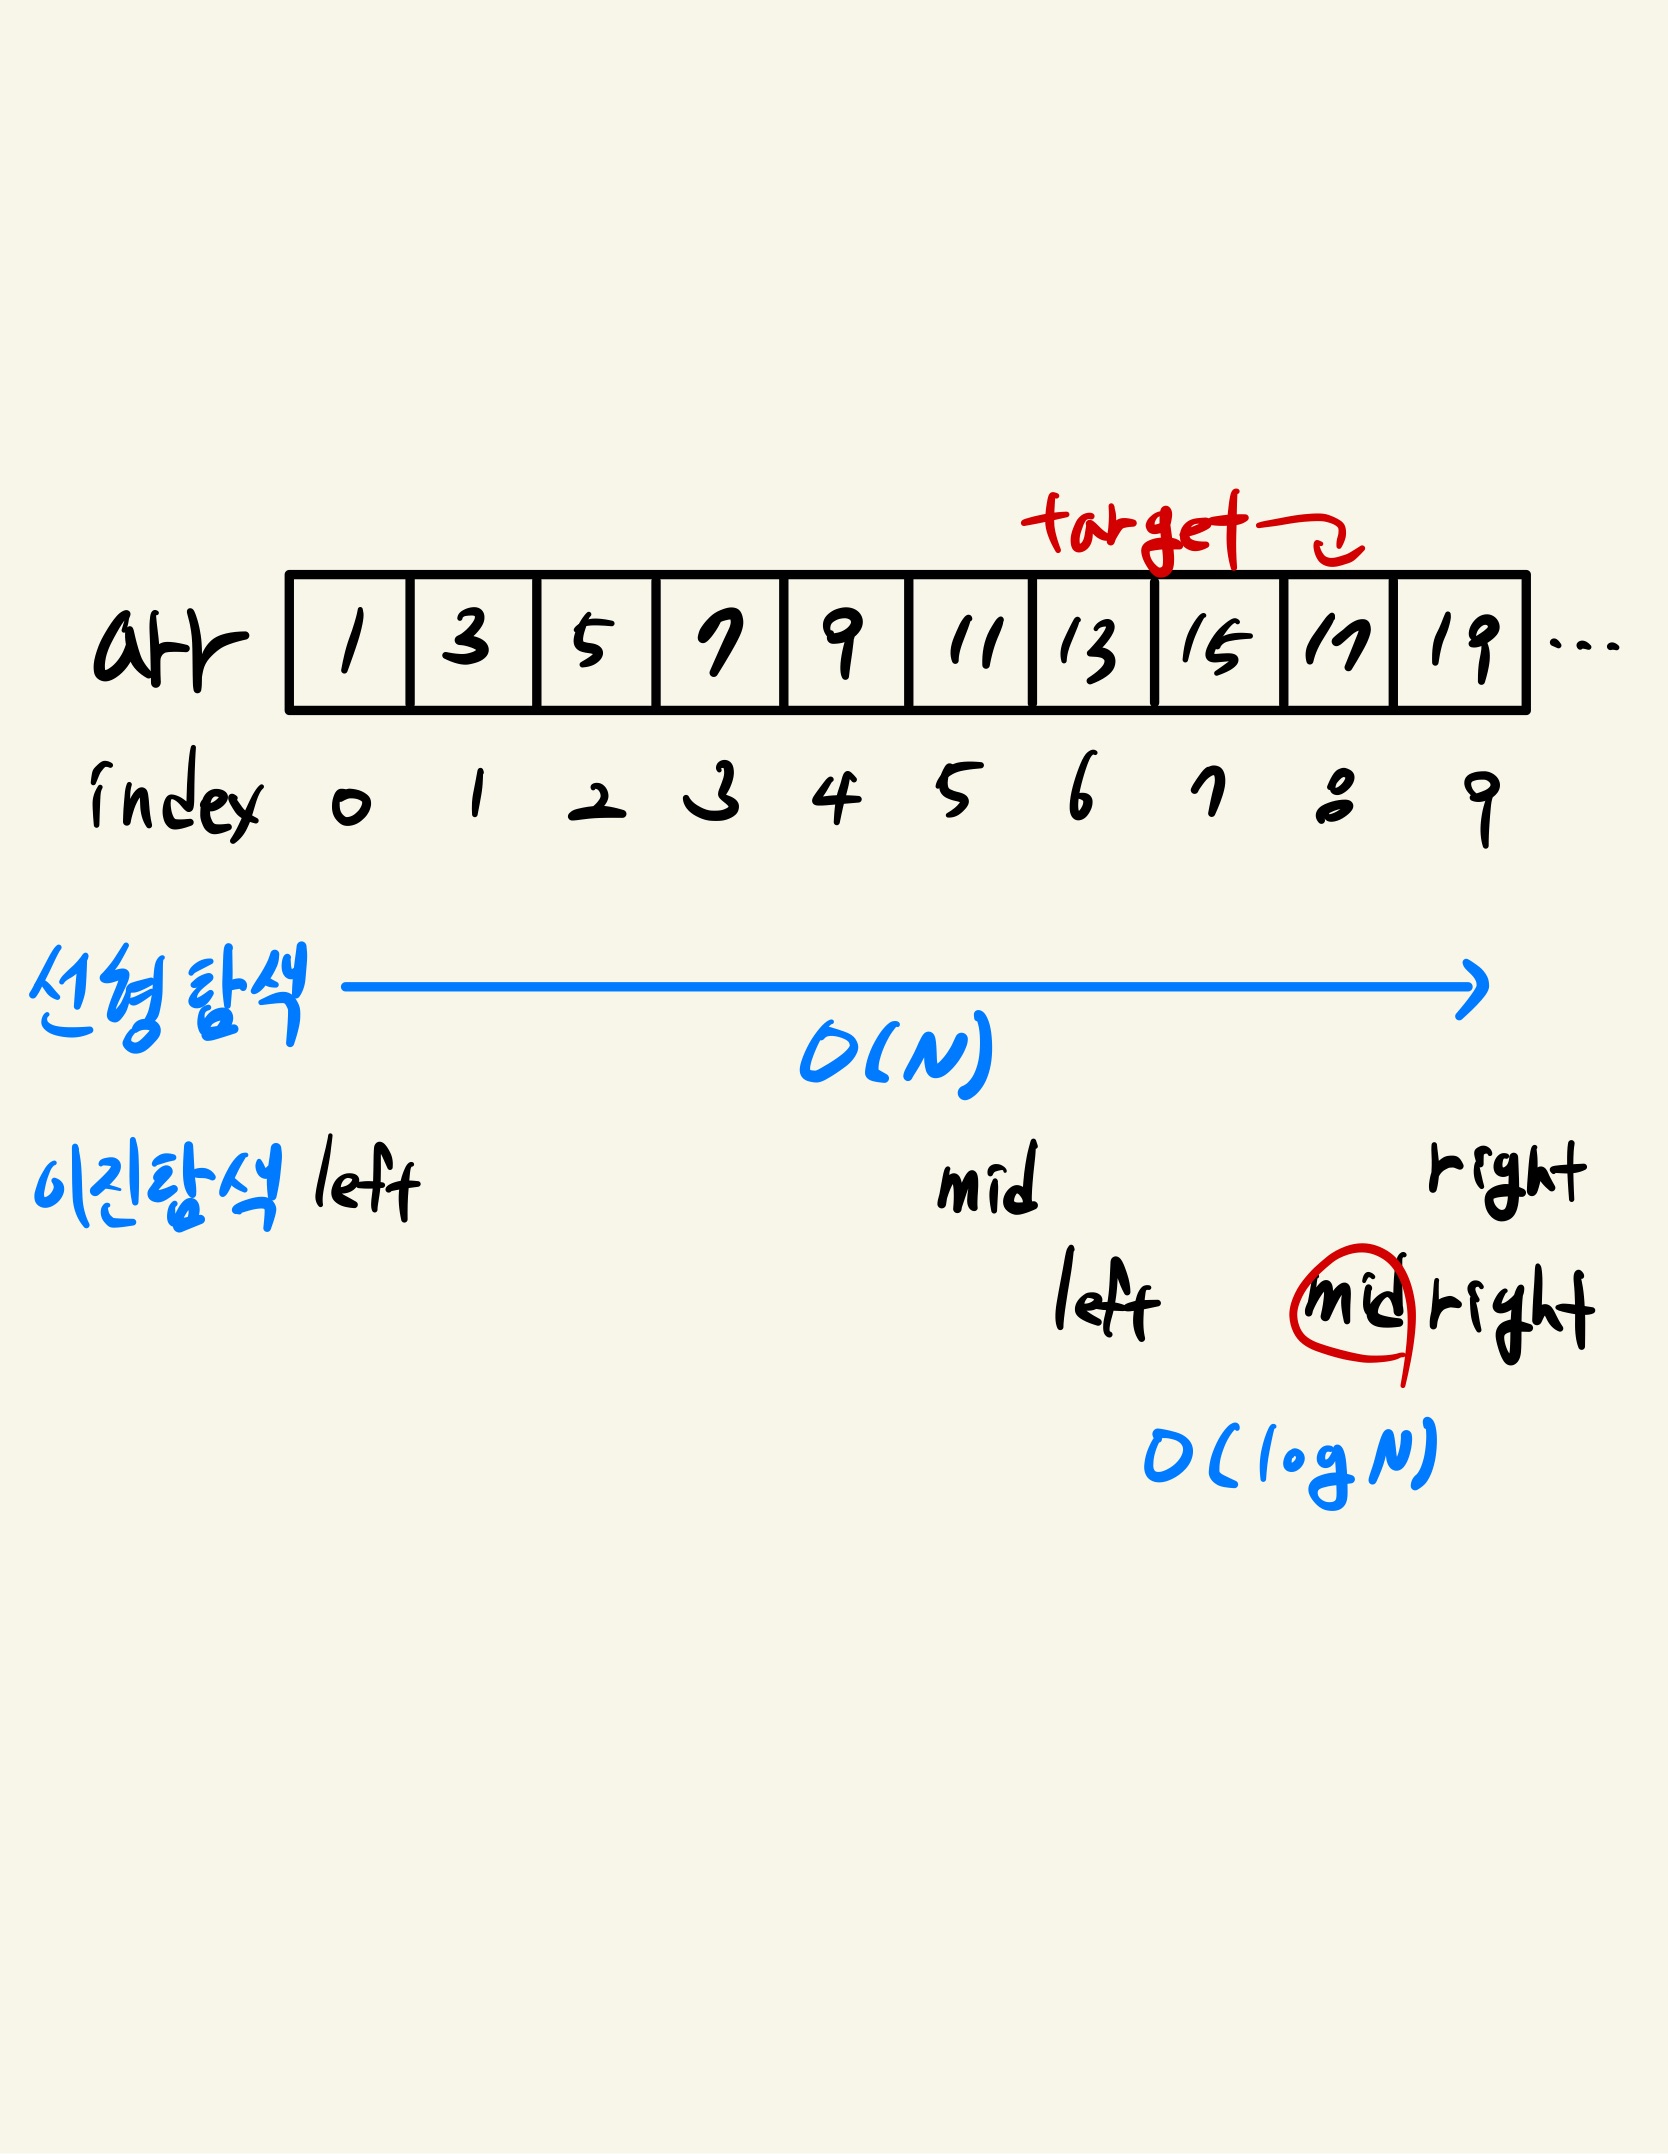 target
arr 1 3 5 7 9 11 13 15 17 19 ....
index 0 1 2 3 4 5 6 7 8 9
선형탐색
O(N)
이진탐색 left mid right
left mid right
O(logN)